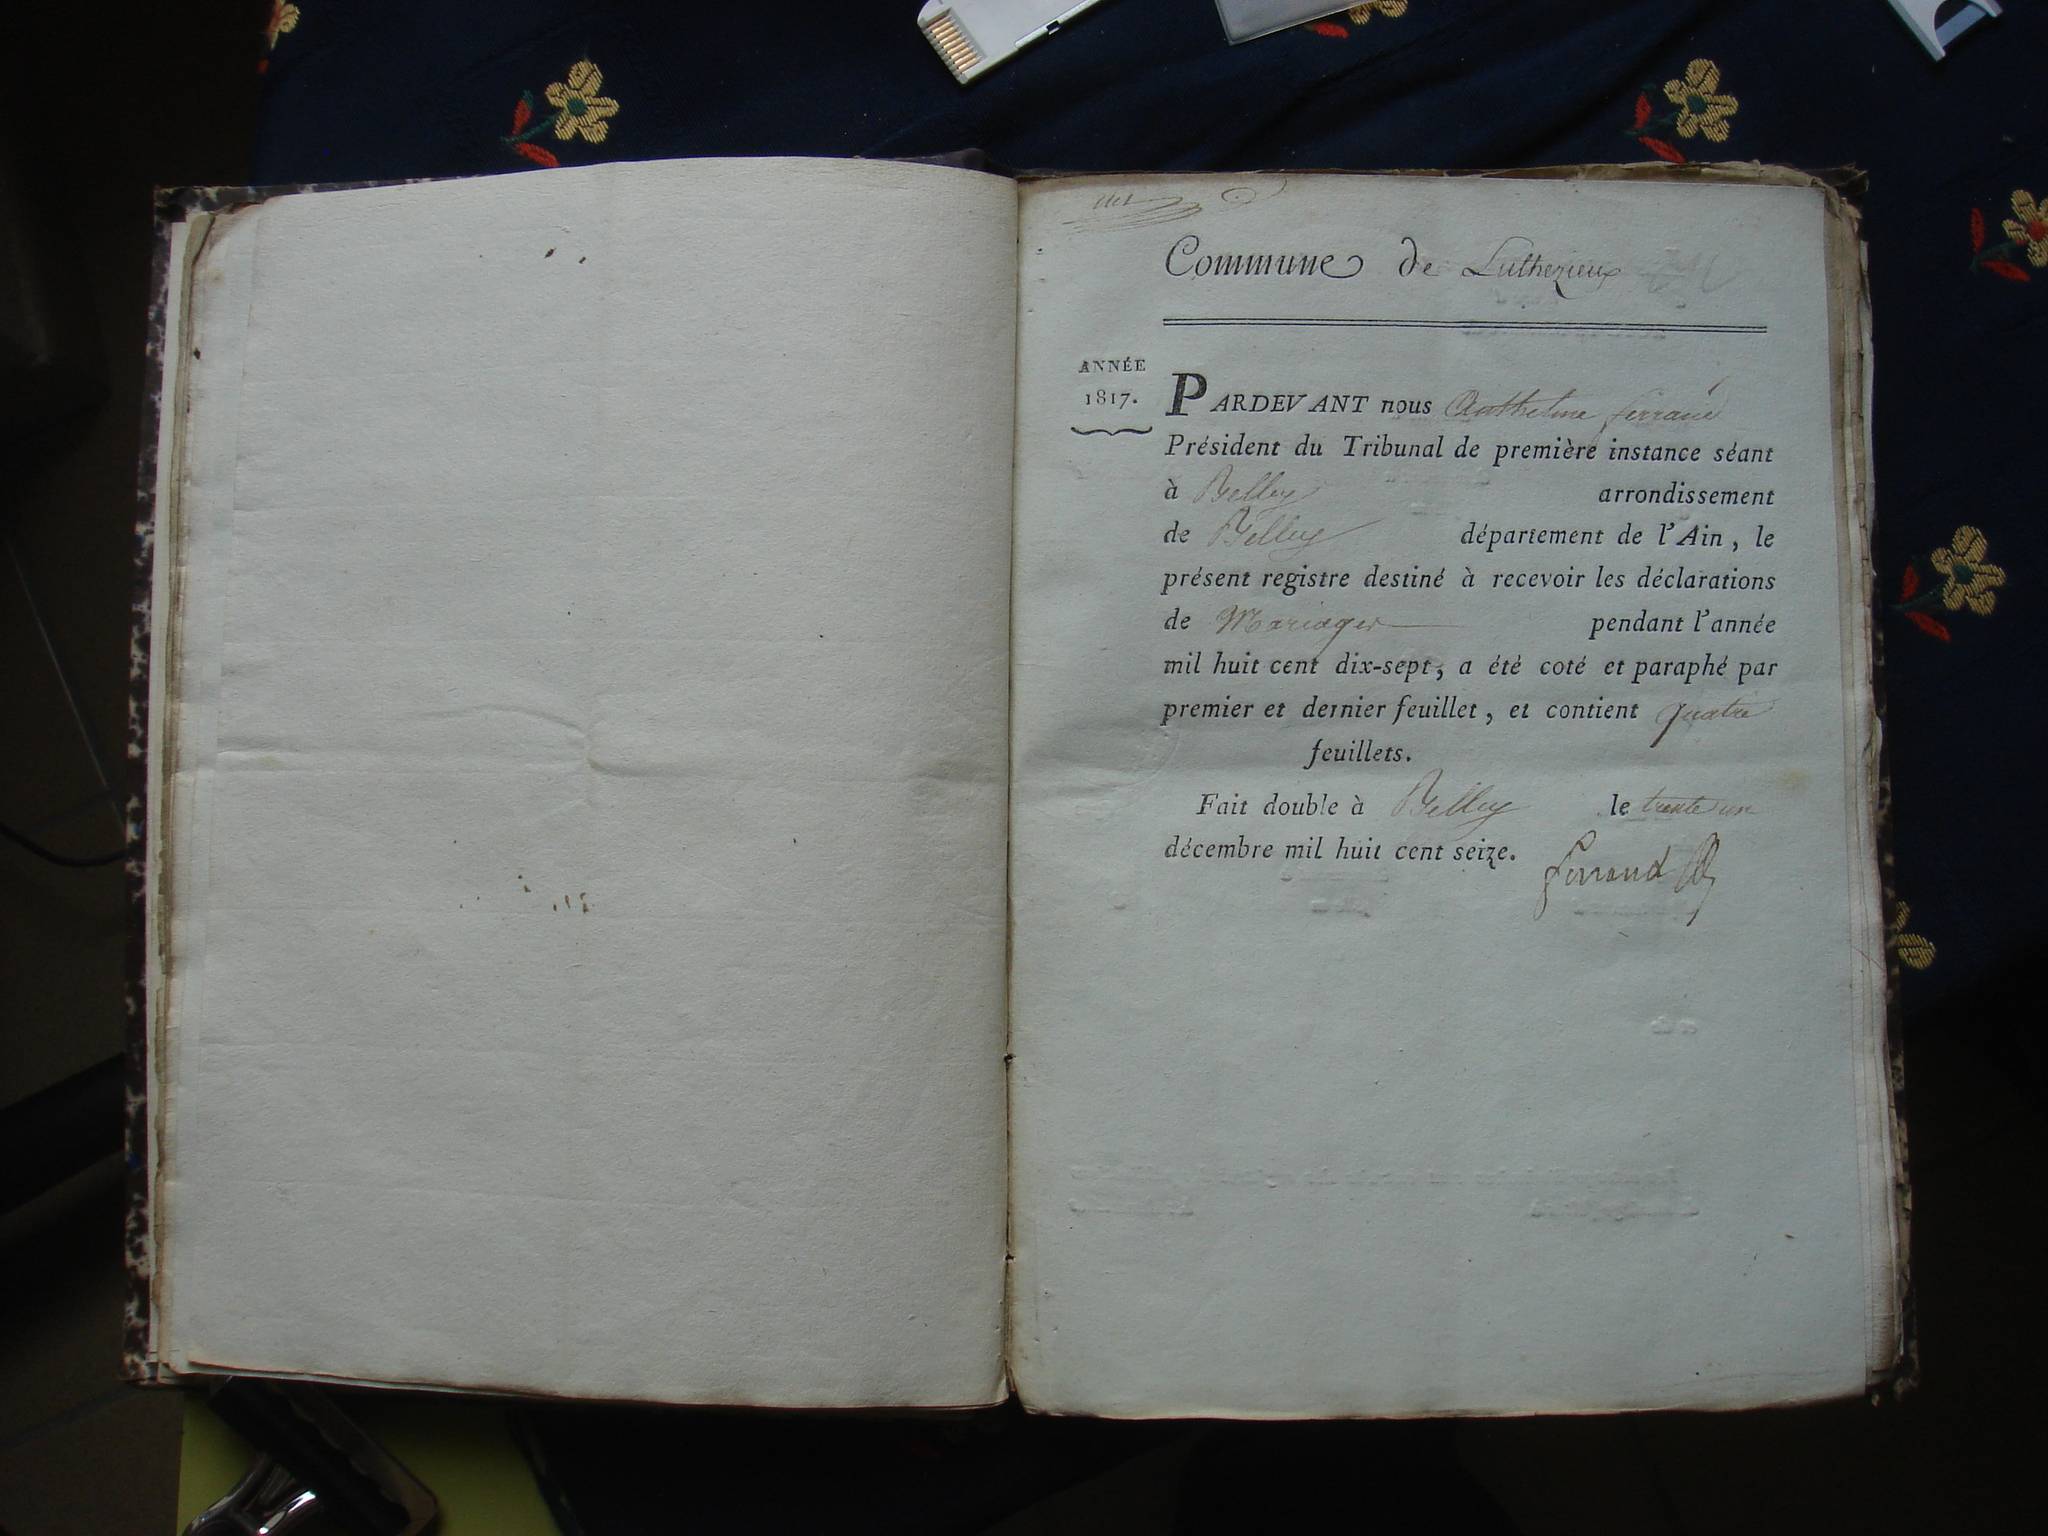 Commune de Luthezieu
ANNÉE
1817.
PARDEVANT nous Anthelme ferrand
Président du Tribunal de première instance séant
à Belley arrondissement
de Belley département de l'Ain, le
présent registre destiné à recevoir les déclarations
de Mariages pendant l'année
mil huit cent dix-sept, a été coté et paraphé par
premier et dernier feuillet, et contient quatre
feuillets.
Fait double à Belley le trente un
décembre mil huit cent seize.
ferrand